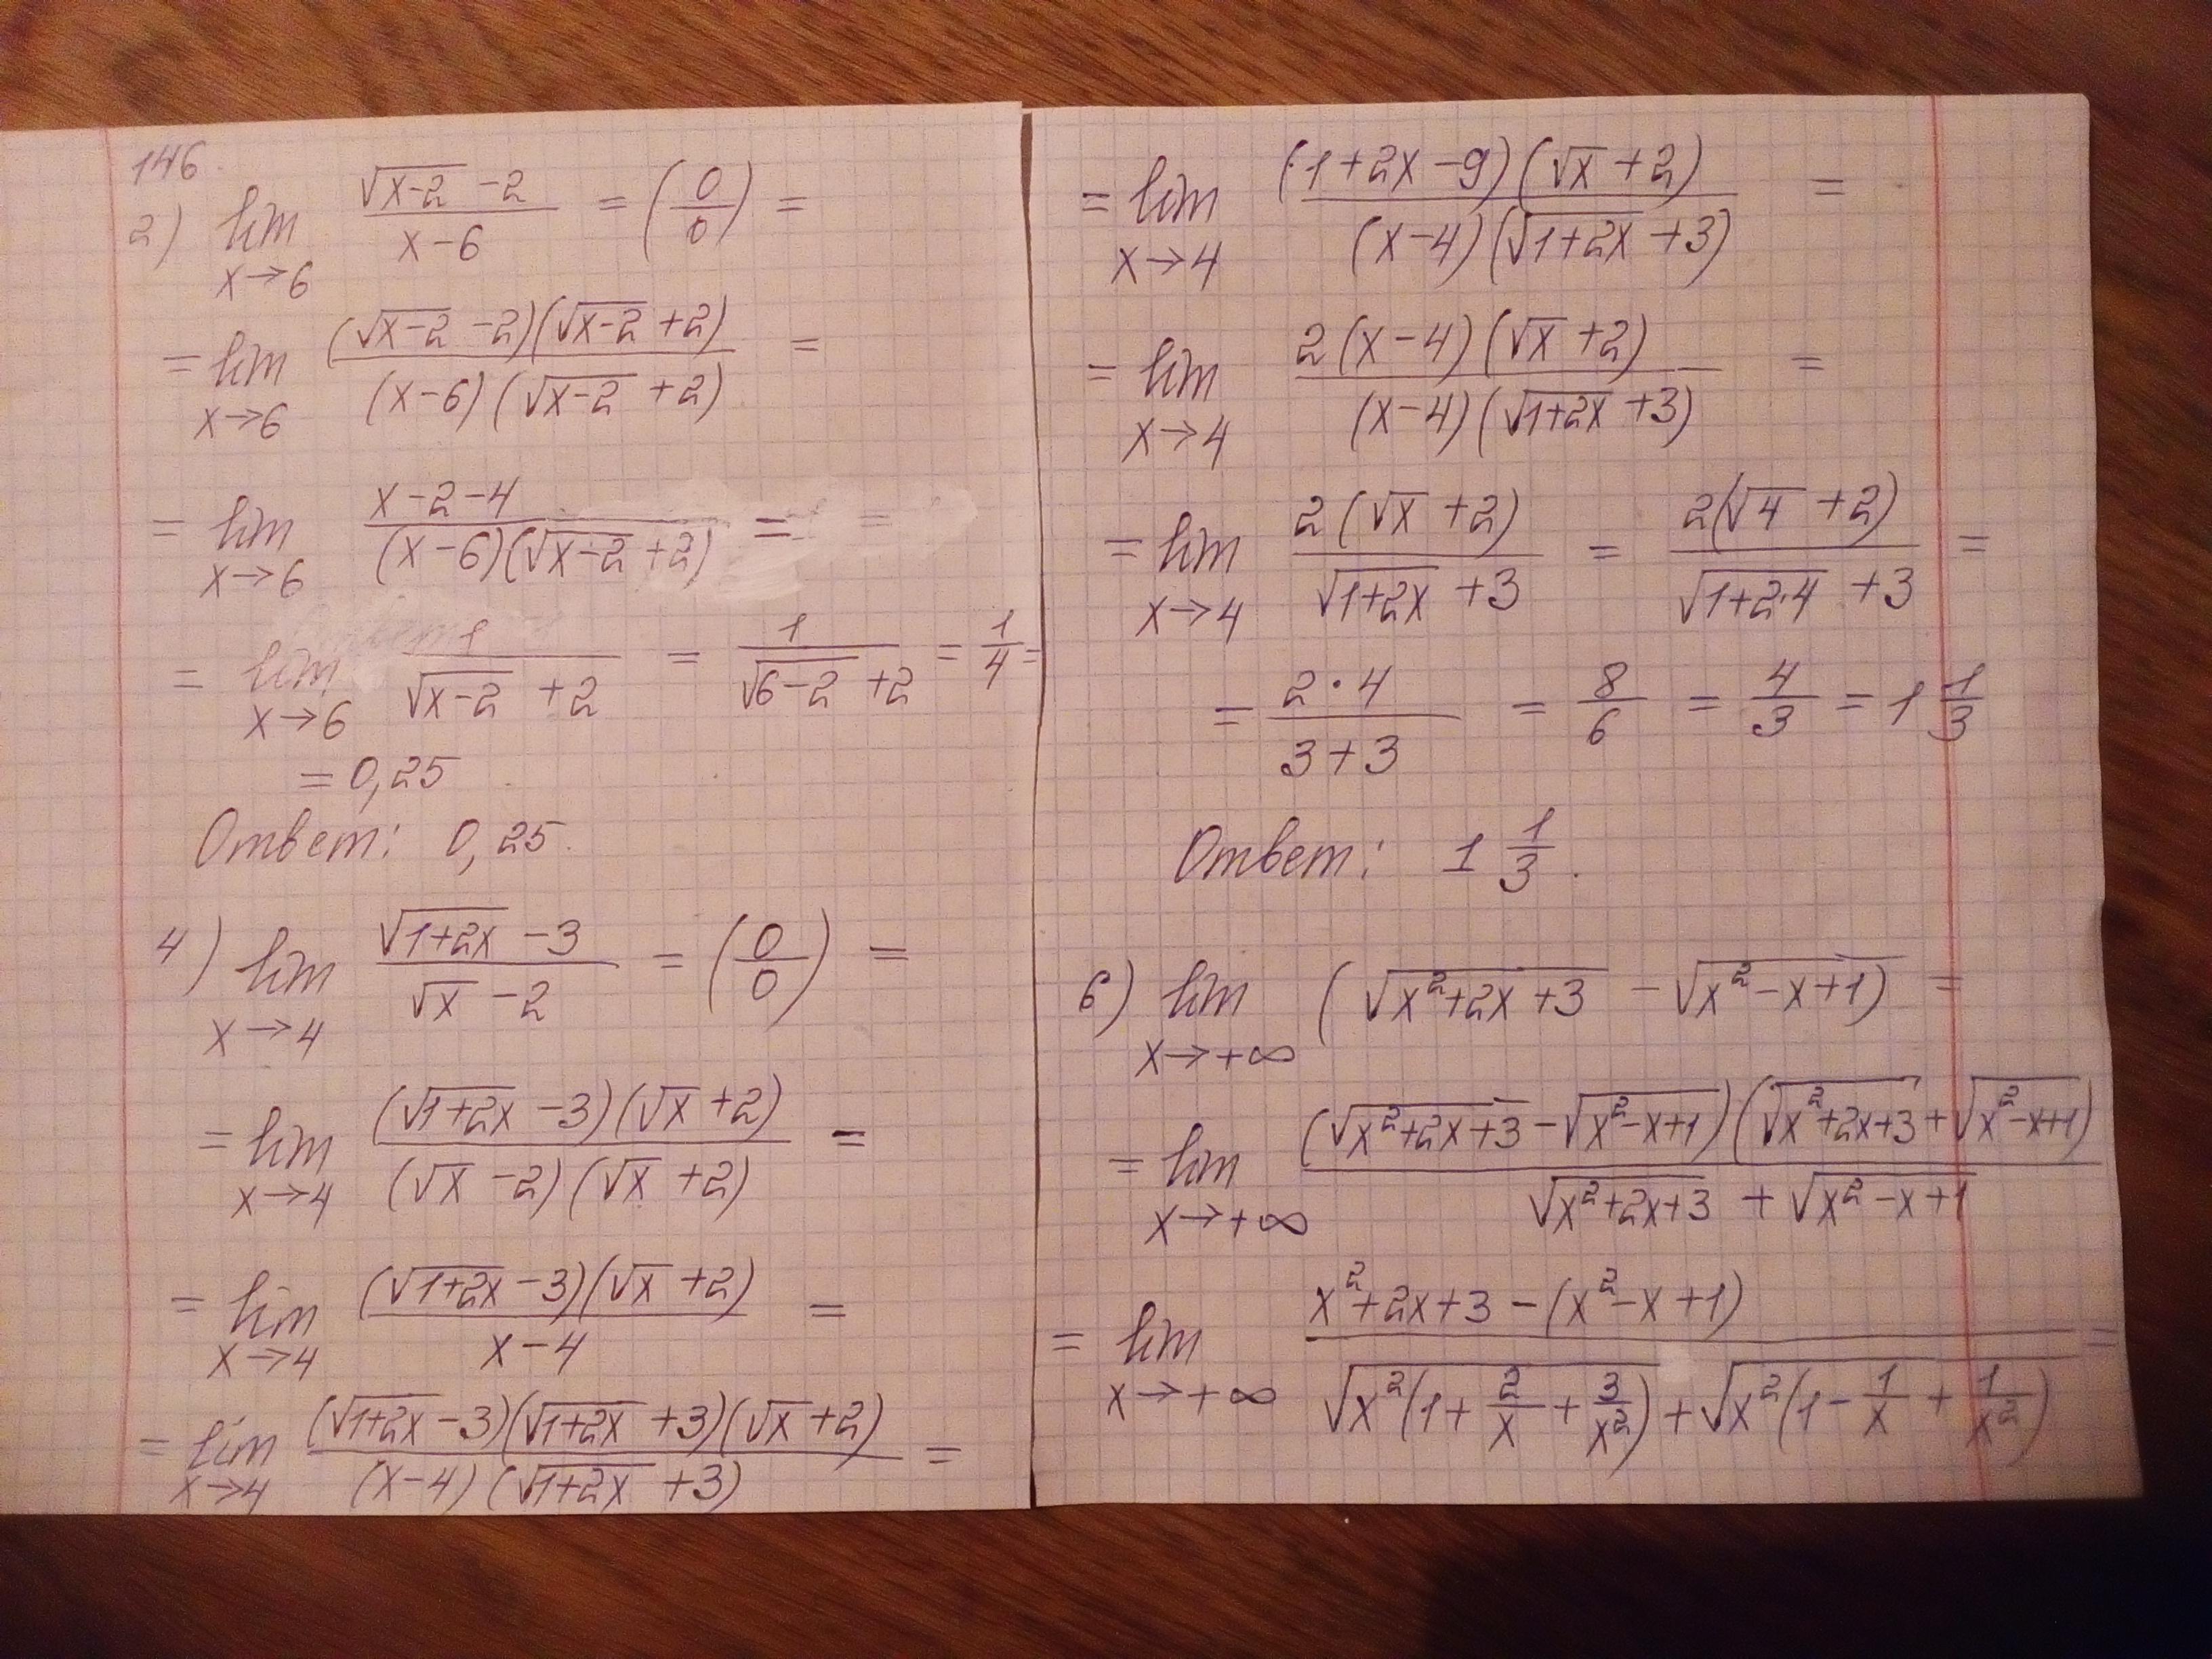 146.
2) lim x→6 (√(x-2) - 2)/(x-6) = (0/0) =
= lim x→6 ((√(x-2) - 2)(√(x-2) + 2))/((x-6)(√(x-2) + 2)) =
= lim x→6 (x-2-4)/((x-6)(√(x-2) + 2)) =
= lim x→6 1/(√(x-2) + 2) = 1/(√(6-2) + 2) = 1/4 =
= 0,25
Ответ: 0,25.
4) lim x→4 (√(1+2x) - 3)/(√x - 2) = (0/0) =
= lim x→4 ((√(1+2x) - 3)(√x + 2))/((√x - 2)(√x + 2)) =
= lim x→4 ((√(1+2x) - 3)(√x + 2))/(x-4) =
= lim x→4 ((√(1+2x) - 3)(√(1+2x) + 3)(√x + 2))/((x-4)(√(1+2x) + 3)) =
= lim x→4 ((1+2x-9)(√x + 2))/((x-4)(√(1+2x) + 3)) =
= lim x→4 (2(x-4)(√x + 2))/((x-4)(√(1+2x) + 3)) =
= lim x→4 (2(√x + 2))/(√(1+2x) + 3) = (2(√4 + 2))/(√(1+2·4) + 3) =
= (2·4)/(3+3) = 8/6 = 4/3 = 1 1/3
Ответ: 1 1/3.
6) lim x→+∞ (√(x²+2x+3) - √(x²-x+1)) =
= lim x→+∞ ((√(x²+2x+3) - √(x²-x+1))(√(x²+2x+3) + √(x²-x+1)))/(√(x²+2x+3) + √(x²-x+1))
= lim x→+∞ (x²+2x+3-(x²-x+1))/(√(x²(1+2/x+3/x²)) + √(x²(1-1/x+1/x²))) =